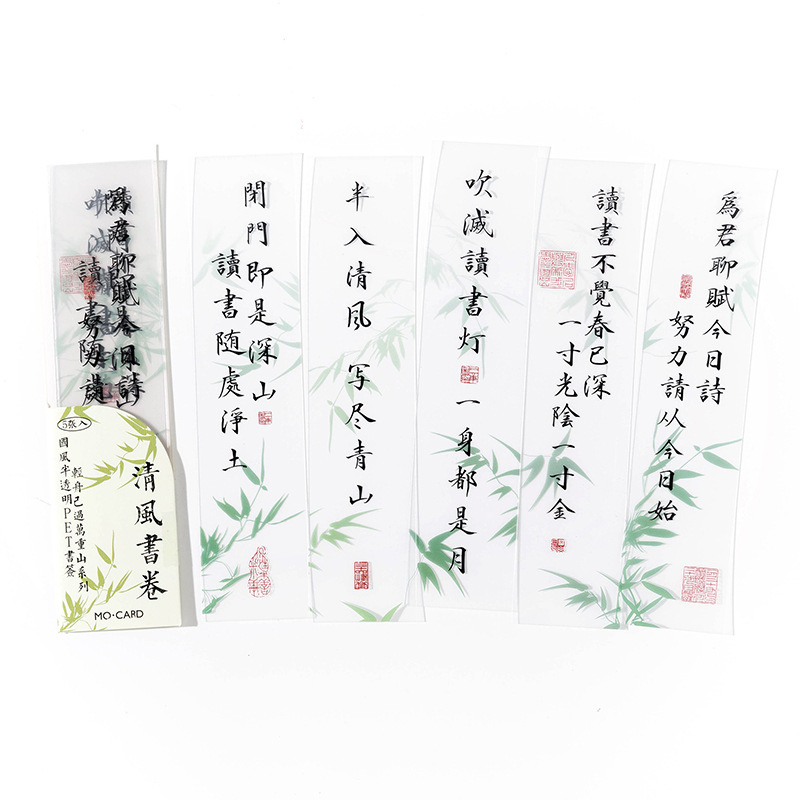 5張入
清風書卷
輕舟已過萬重山系列
國風半透明PET書簽
MO·CARD
閉門即是深山
讀書随處淨土
半入清風 写尽青山
吹滅讀書灯 一身都是月
讀書不覺春已深
一寸光陰一寸金
爲君聊賦今日詩
努力請从今日始